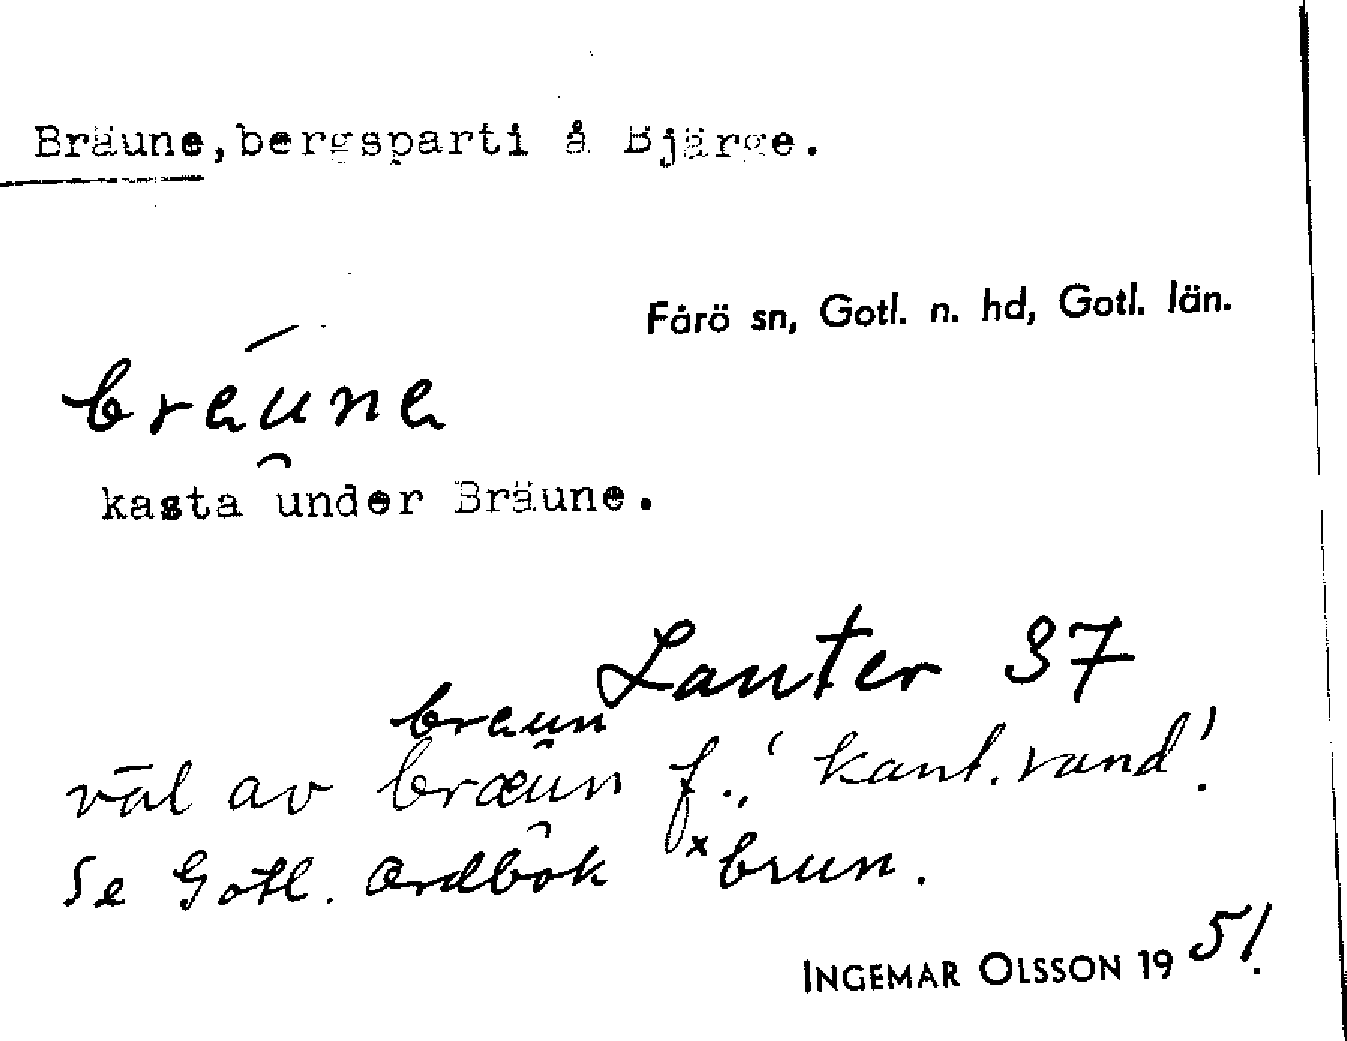 Bräune, bergsparti å Bjärge.
Fårö sn, Gotl. n. hd, Gotl. län.
bräune
kasta under Bräune.
Lauter 37
braun
väl av bræun f., 'kant. rand'.
Se Gotl. Ordbok *brun.
INGEMAR OLSSON 1951.